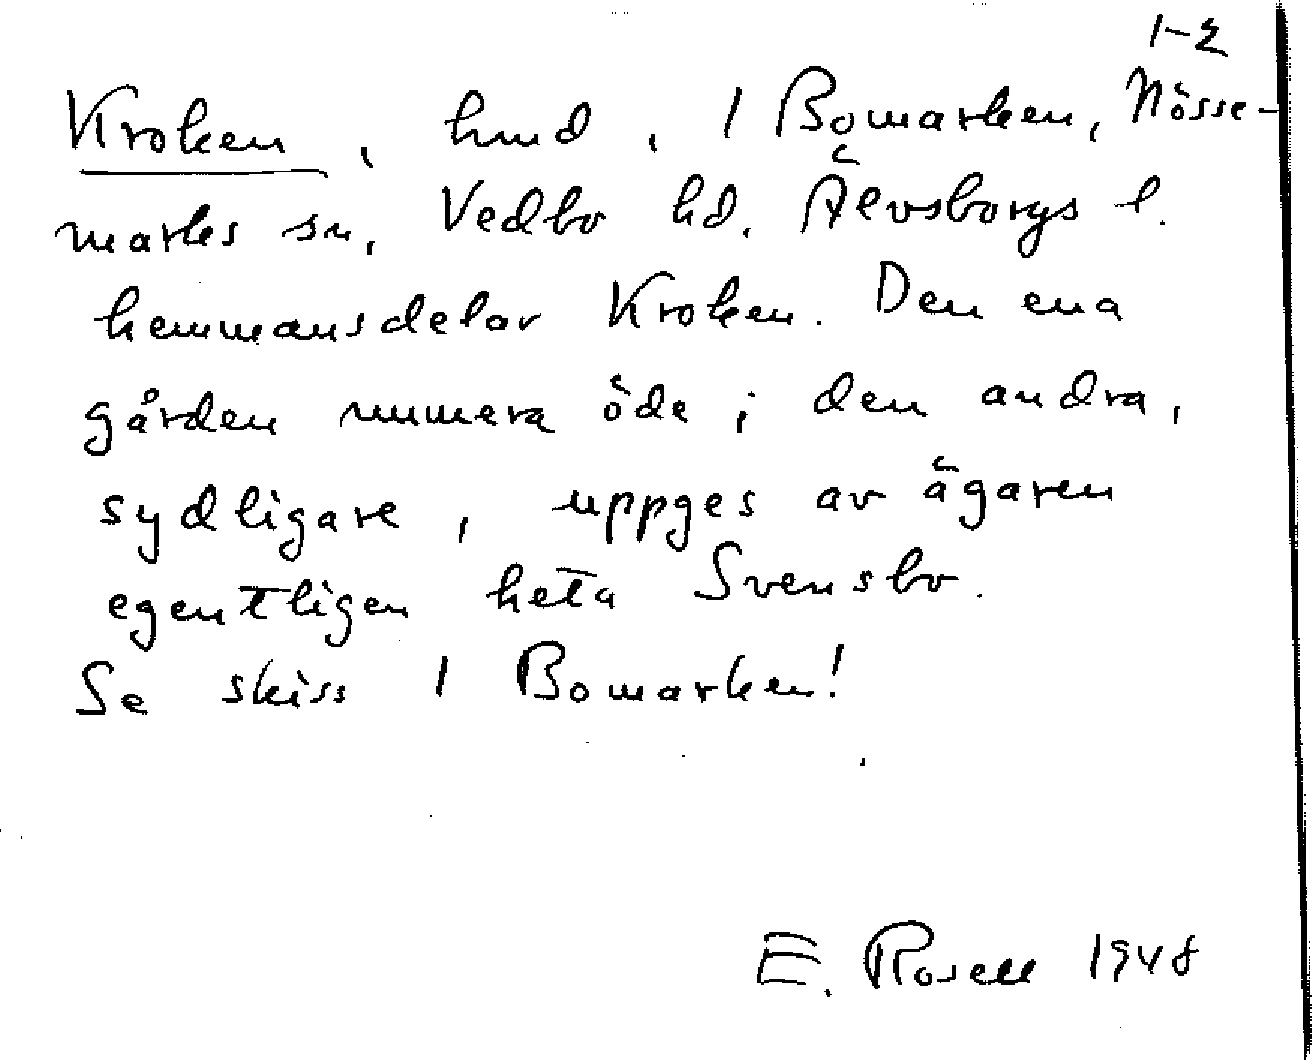 1-2
Kroken, hmd, 1 Bomarken, Nösse-
marks sn, Vedbo hd. Älvsborgs l.
hemmansdelar Kroken. Den ena
gården numera öde; den andra,
sydligare, uppges av ägaren
egentligen heta Svensbo.
Se skiss 1 Bomarken!
E. Rosell 1948